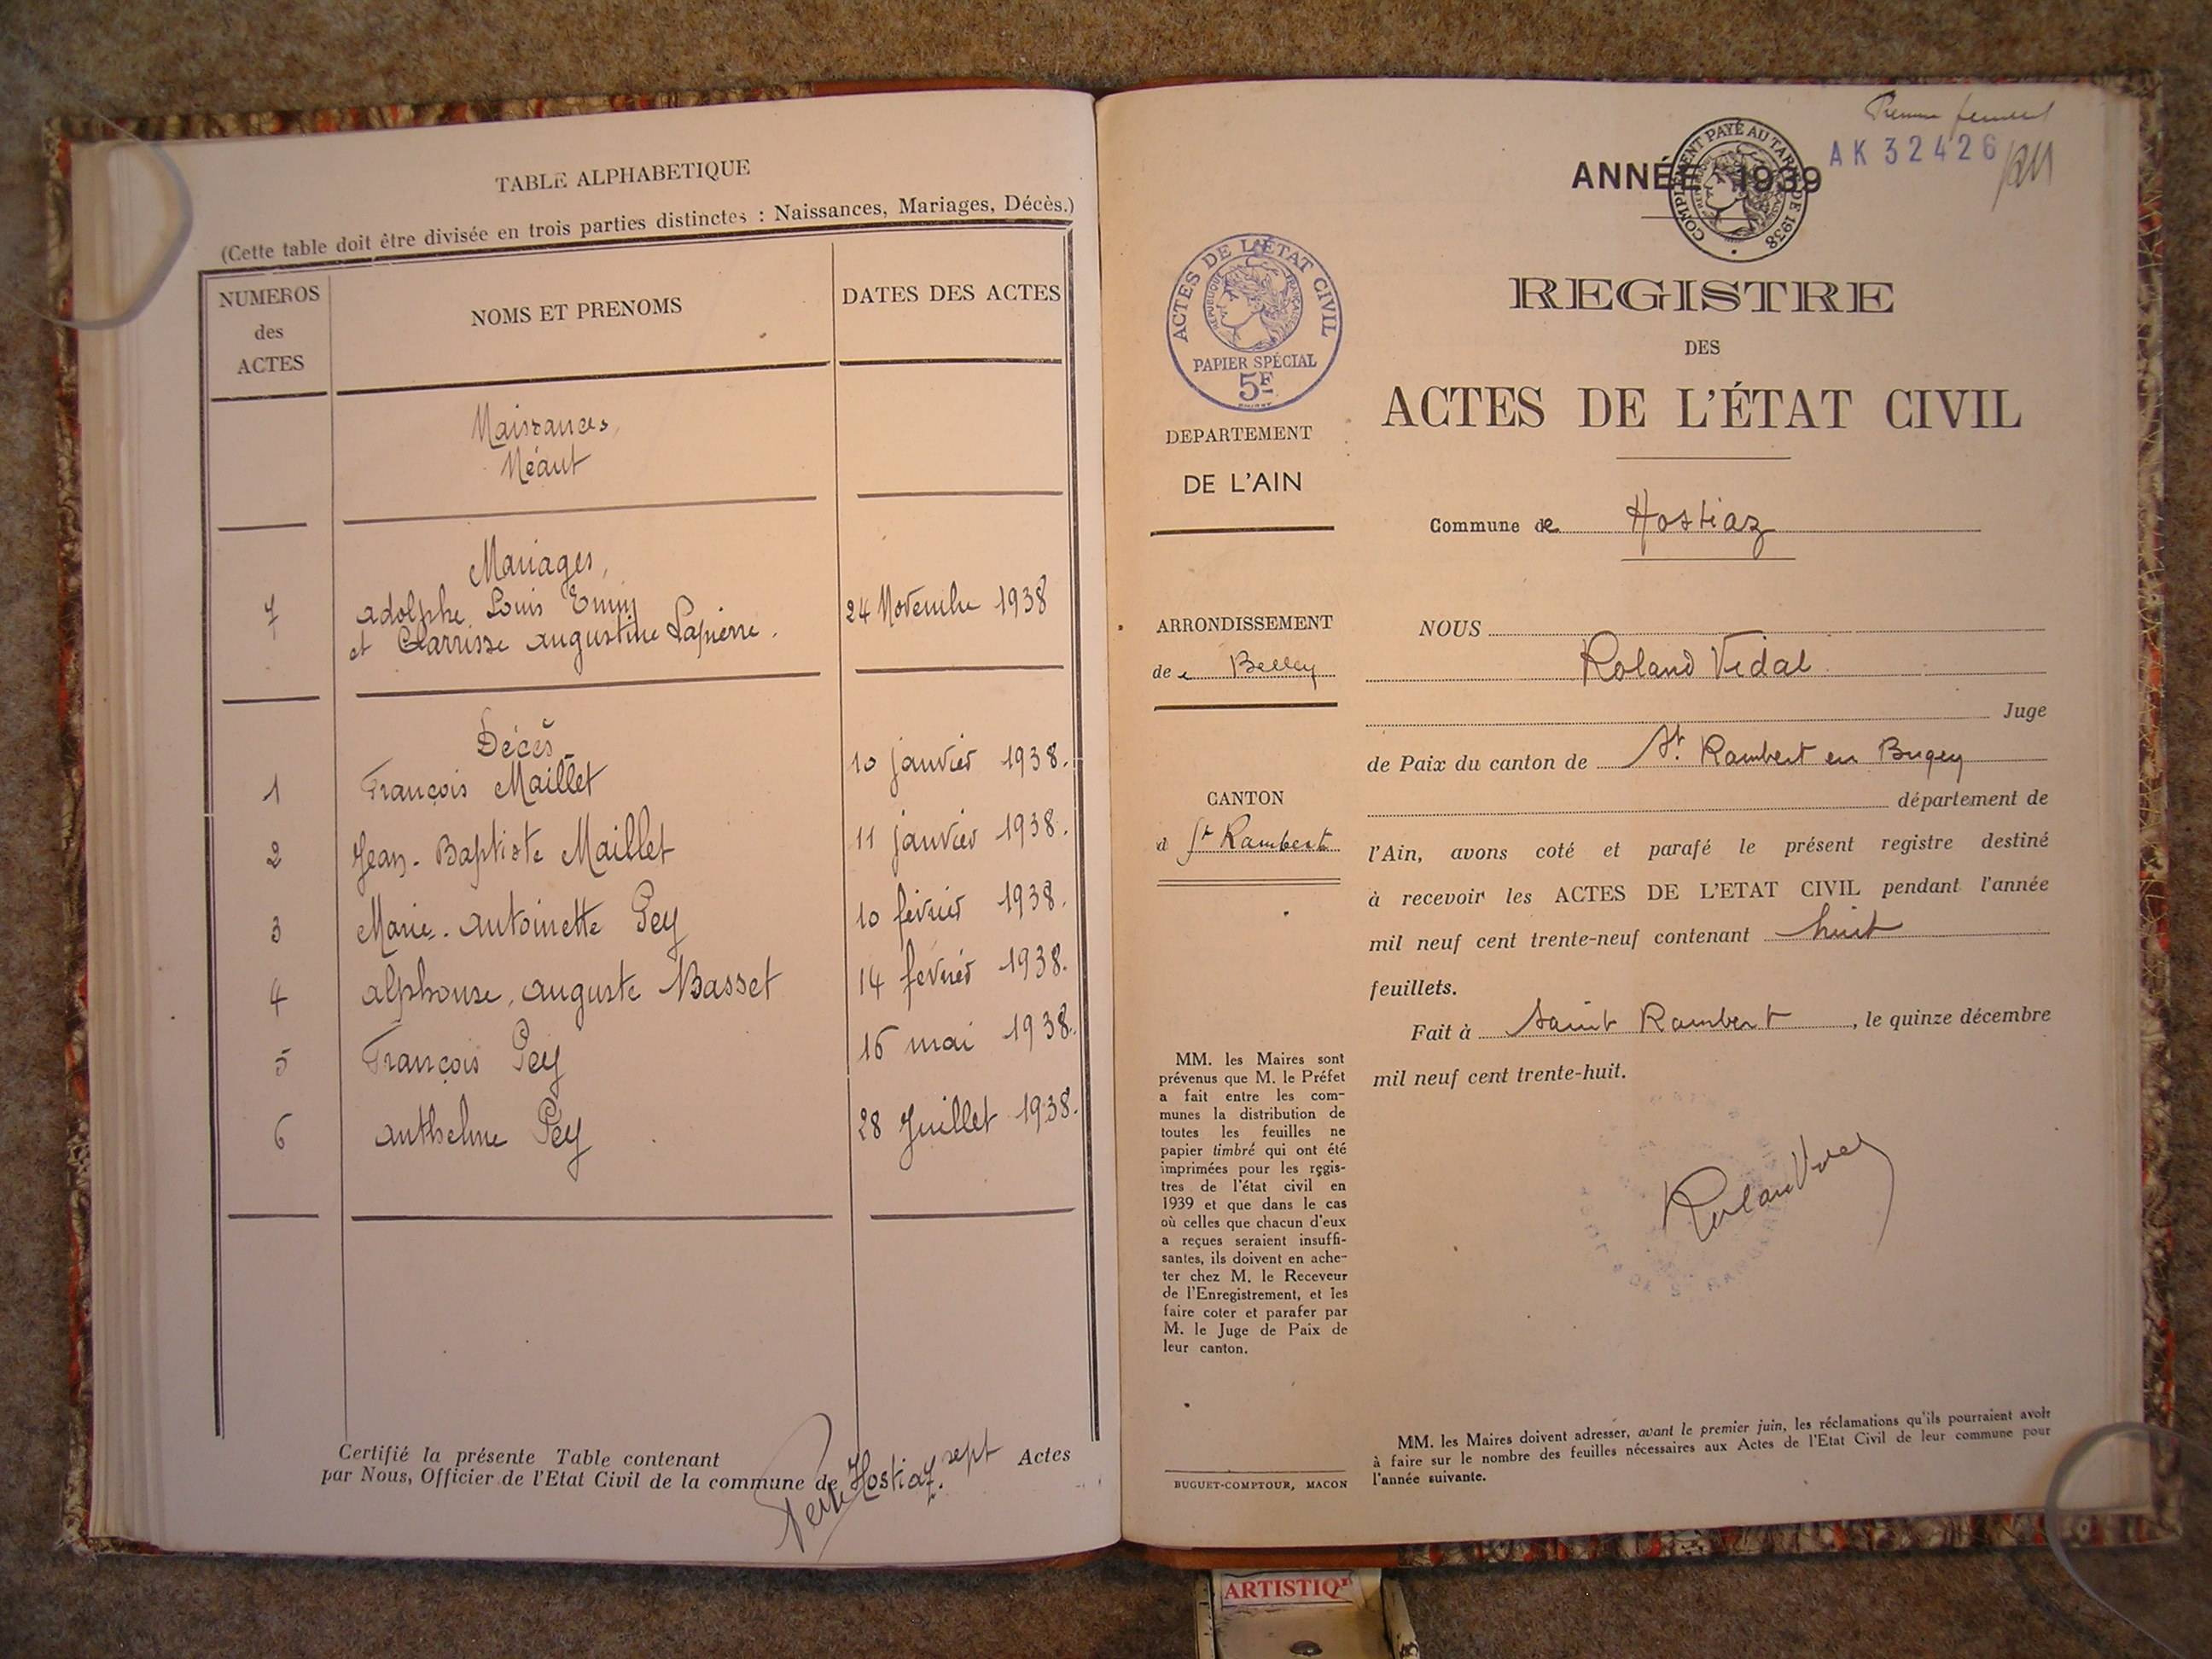 TABLE ALPHABETIQUE
(Cette table doit être divisée en trois parties distinctes : Naissances, Mariages, Décès.)
NUMEROS des ACTES
NOMS ET PRENOMS
DATES DES ACTES
Naissances,
Néant
Mariages,
7 Adolphe, Louis 24 Novembre 1938
et Clarisse Augustine Lapierre.
Décès
1 François Maillet 10 janvier 1938.
2 Jean-Baptiste Maillet 11 janvier 1938.
3 Marie-Antoinette Pey 10 février 1938.
4 Alphonse, Auguste Masset 14 février 1938.
5 François Pey 16 mai 1938.
6 Anthelme Pey 28 Juillet 1938.
Certifié la présente Table contenant sept Actes
par Nous, Officier de l'Etat Civil de la commune de Hostiaz.
AK 32426
ANNÉE 1939
COMPLÉMENT PAYÉ AU TARIF DE 1938
REGISTRE
DES
ACTES DE L'ÉTAT CIVIL
ACTES DE L'ÉTAT CIVIL
RÉPUBLIQUE FRANÇAISE
PAPIER SPÉCIAL
5F
DEPARTEMENT
DE L'AIN
ARRONDISSEMENT
de Belley
CANTON
d St Rambert
Commune de Hostiaz
NOUS
Roland Vidal
Juge
de Paix du canton de St. Rambert en Bugey
département de
l'Ain, avons coté et parafé le présent registre destiné
à recevoir les ACTES DE L'ETAT CIVIL pendant l'année
mil neuf cent trente-neuf contenant huit
feuillets.
Fait à Saint Rambert, le quinze décembre
mil neuf cent trente-huit.
MM. les Maires sont
prévenus que M. le Préfet
a fait entre les com-
munes la distribution de
toutes les feuilles ne
papier timbré qui ont été
imprimées pour les regis-
tres de l'état civil en
1939 et que dans le cas
où celles que chacun d'eux
a reçues seraient insuffi-
santes, ils doivent en ache-
ter chez M. le Receveur
de l'Enregistrement, et les
faire coter et parafer par
M. le Juge de Paix de
leur canton.
BUGUET-COMPTOUR, MACON
MM. les Maires doivent adresser, avant le premier juin, les réclamations qu'ils pourraient avoir
à faire sur le nombre des feuilles nécessaires aux Actes de l'Etat Civil de leur commune pour
l'année suivante.